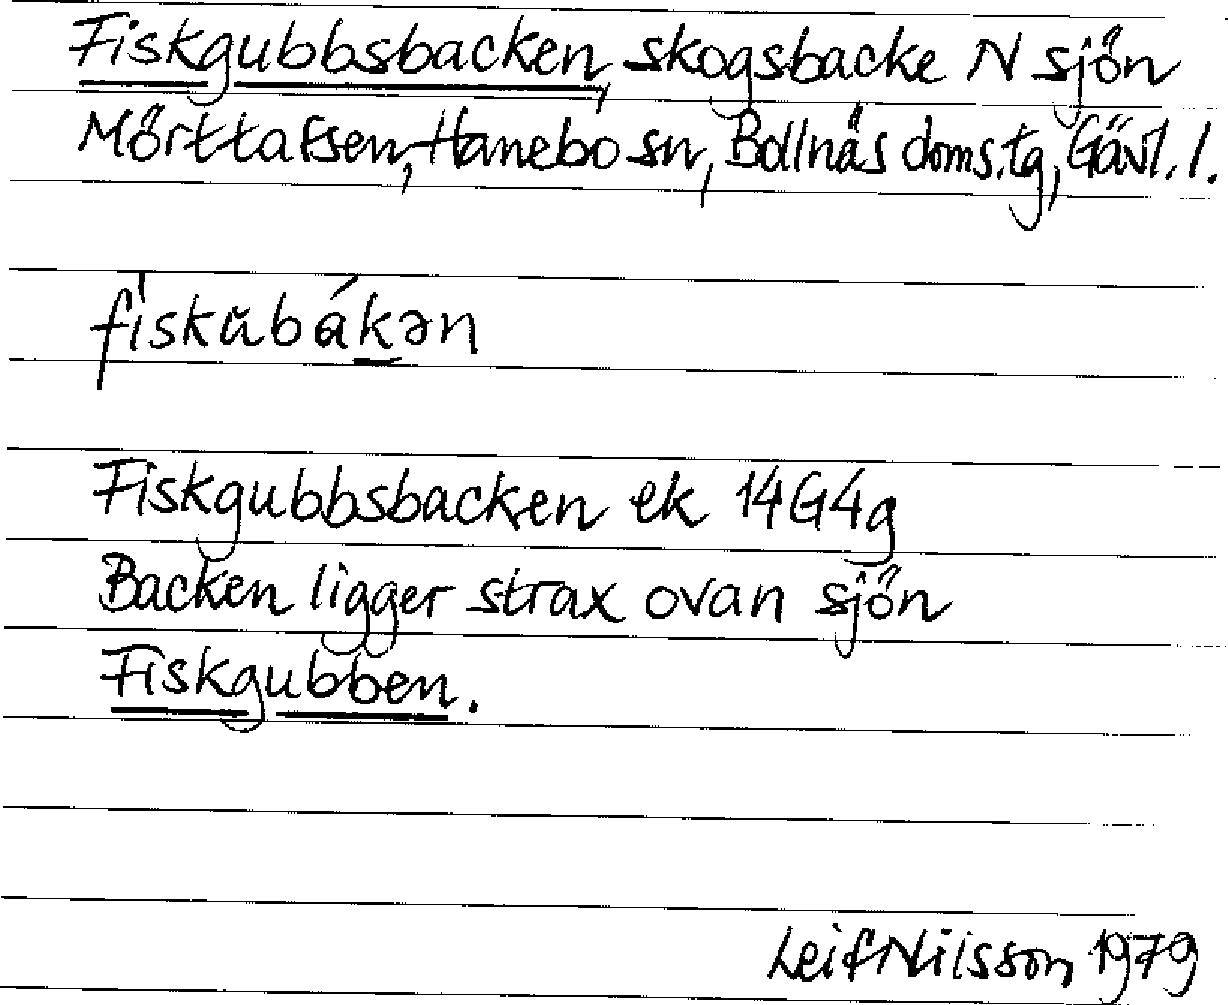 Fiskgubbsbacken, skogsbacke N sjön
Mörttassen, Hanebo sn, Bollnäs doms.tg, Gävl. l.
fìskŭbákən
Fiskgubbsbacken ek 14G4g
Backen ligger strax ovan sjön
Fiskgubben.
Leif Nilsson 1979